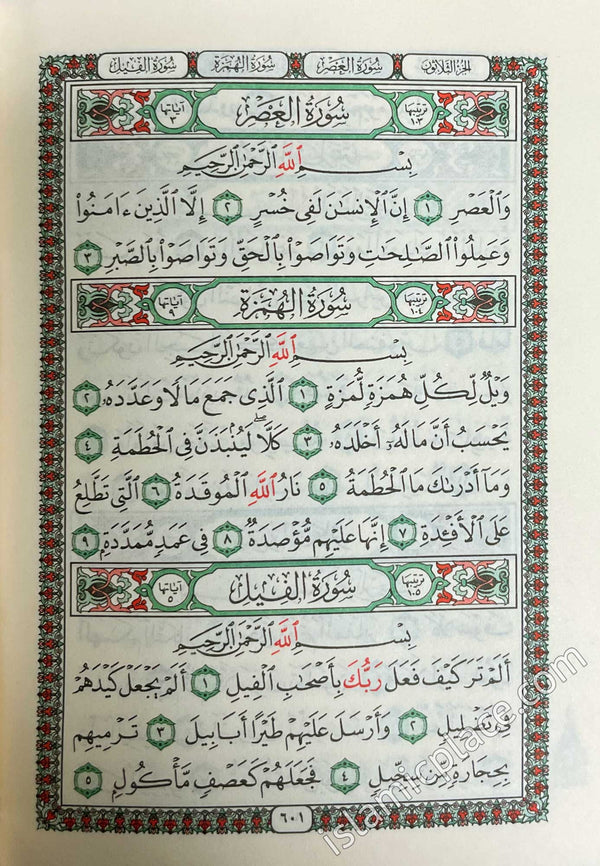 الجزء الثلاثون سورة العصر سورة الهمزة سورة الفيل
ترتيبها ١٠٣ سُورَةُ العَصْرِ آياتها ٣
بِسْمِ اللَّهِ الرَّحْمَٰنِ الرَّحِيمِ
وَالْعَصْرِ ١ إِنَّ الْإِنسَانَ لَفِي خُسْرٍ ٢ إِلَّا الَّذِينَ ءَامَنُوا
وَعَمِلُوا الصَّالِحَاتِ وَتَوَاصَوْا بِالْحَقِّ وَتَوَاصَوْا بِالصَّبْرِ ٣
ترتيبها ١٠٤ سُورَةُ الهُمَزَةِ آياتها ٩
بِسْمِ اللَّهِ الرَّحْمَٰنِ الرَّحِيمِ
وَيْلٌ لِّكُلِّ هُمَزَةٍ لُّمَزَةٍ ١ الَّذِي جَمَعَ مَالًا وَعَدَّدَهُ ٢
يَحْسَبُ أَنَّ مَالَهُ أَخْلَدَهُ ٣ كَلَّا ۖ لَيُنبَذَنَّ فِي الْحُطَمَةِ ٤
وَمَا أَدْرَاكَ مَا الْحُطَمَةُ ٥ نَارُ اللَّهِ الْمُوقَدَةُ ٦ الَّتِي تَطَّلِعُ
عَلَى الْأَفْئِدَةِ ٧ إِنَّهَا عَلَيْهِم مُّؤْصَدَةٌ ٨ فِي عَمَدٍ مُّمَدَّدَةٍ ٩
ترتيبها ١٠٥ سُورَةُ الفِيلِ آياتها ٥
بِسْمِ اللَّهِ الرَّحْمَٰنِ الرَّحِيمِ
أَلَمْ تَرَ كَيْفَ فَعَلَ رَبُّكَ بِأَصْحَابِ الْفِيلِ ١ أَلَمْ يَجْعَلْ كَيْدَهُمْ
فِي تَضْلِيلٍ ٢ وَأَرْسَلَ عَلَيْهِمْ طَيْرًا أَبَابِيلَ ٣ تَرْمِيهِم
بِحِجَارَةٍ مِّن سِجِّيلٍ ٤ فَجَعَلَهُمْ كَعَصْفٍ مَّأْكُولٍ ٥
٦٠١
islamicplace.com